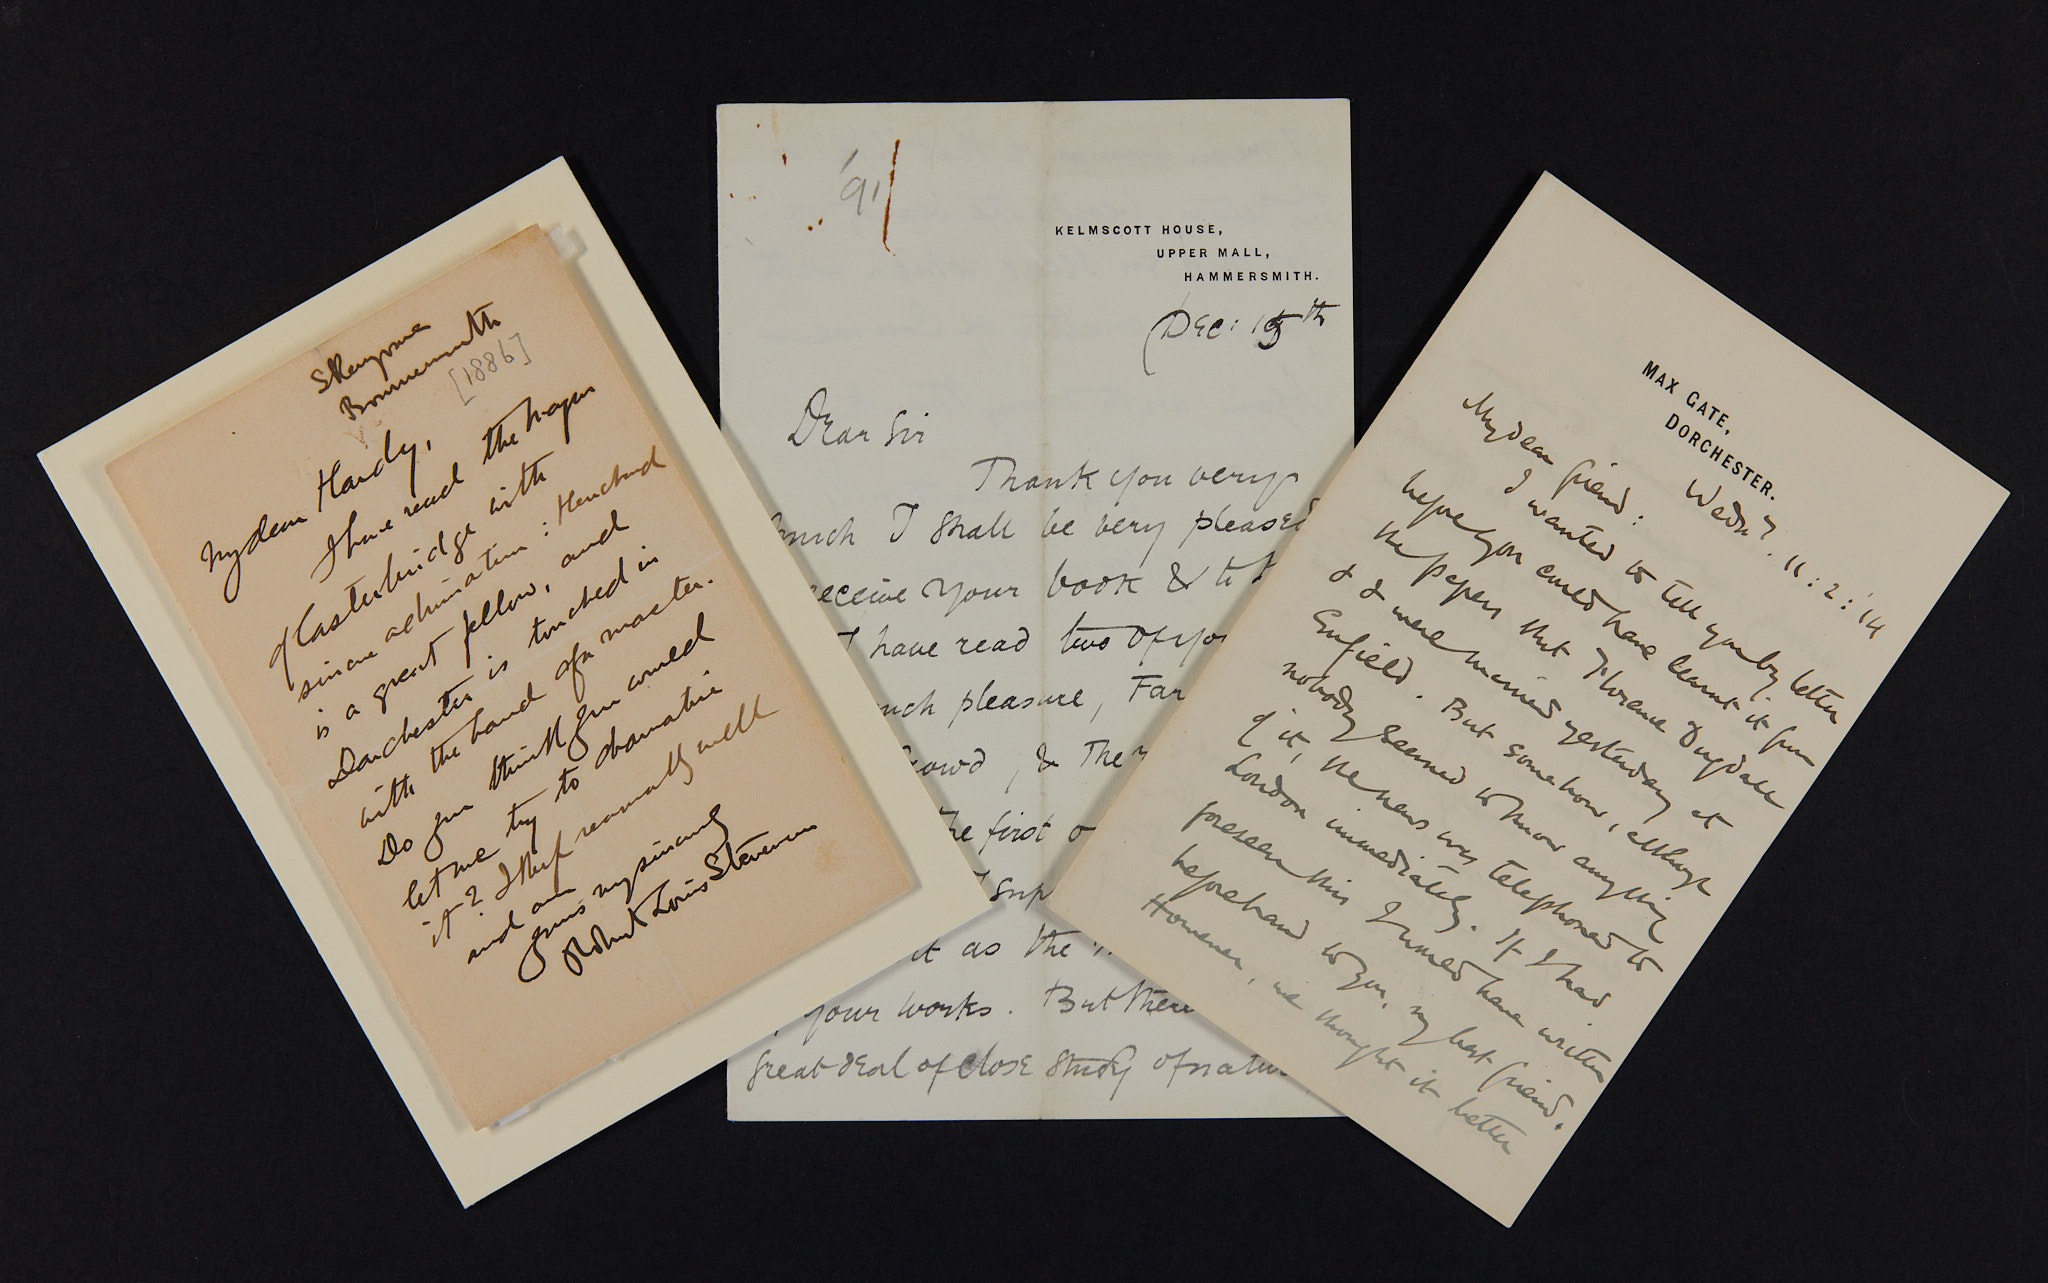 Skerryvore
Bournemouth
[1886]
My dear Hardy,
I have read the Mayor
of Casterbridge with
sincere admiration: Henchard
is a great fellow, and
Dorchester is touched in
with the hand of a master.
Do you think you would
let me try to dramatize
it? I keep unusually well
and am
yours very sincerely
Robert Louis Stevenson
'91
KELMSCOTT HOUSE,
UPPER MALL,
HAMMERSMITH.
Dec: 15th
Dear Sir
Thank you very
much I shall be very pleased
receive your book & to
I have read two of yo
uch pleasure, Far
rowd, & The
The first o
sup
it as the
your works. But there
great deal of close study of natu
MAX GATE,
DORCHESTER.
Wedny. 11:2:'14
My dear friend:
I wanted to tell you by letter
before you could have learnt it from
the papers that Florence Dugdale
& I were married yesterday at
Enfield. But somehow, although
nobody seemed to know anything
of it, the news was telephoned to
London immediately. If I had
foreseen this I would have written
beforehand to you, my best friend.
However, we thought it better